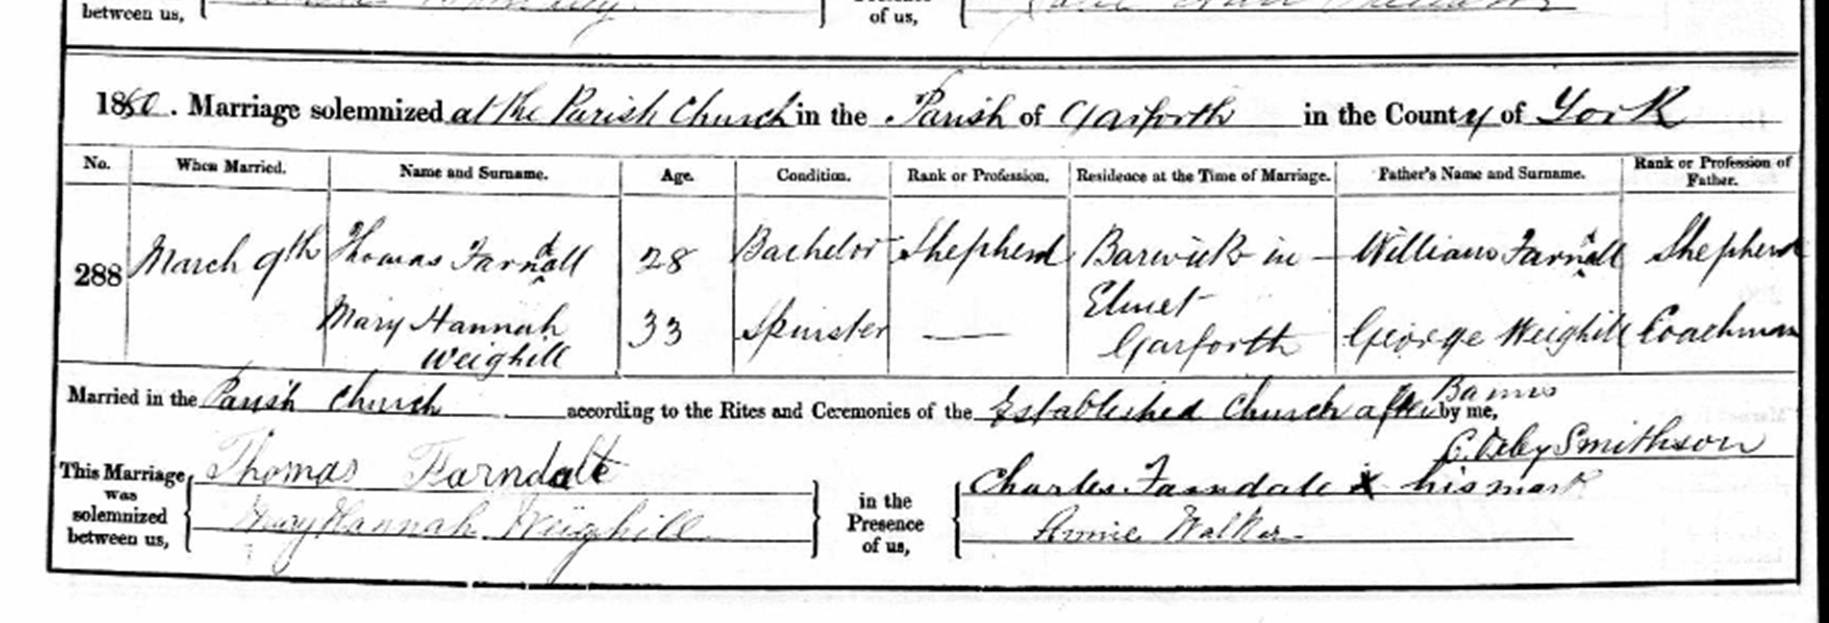 between us,
of us,
1880. Marriage solemnized at the Parish Church in the Parish of Garforth in the County of York
No. When Married. Name and Surname. Age. Condition. Rank or Profession. Residence at the Time of Marriage. Father's Name and Surname. Rank or Profession of Father.
288 March 9th Thomas Farndall 28 Bachelor Shepherd Barwick in Elmet William Farndall Shepherd
Mary Hannah Weighill 33 Spinster — Garforth George Weighill Coachman
Married in the Parish Church according to the Rites and Ceremonies of the Established Church after Banns by me,
Smithson
This Marriage was solemnized between us, Thomas Farndale in the Presence of us, Charles Farndale x his mark
Mary Hannah Weighill Annie Walker